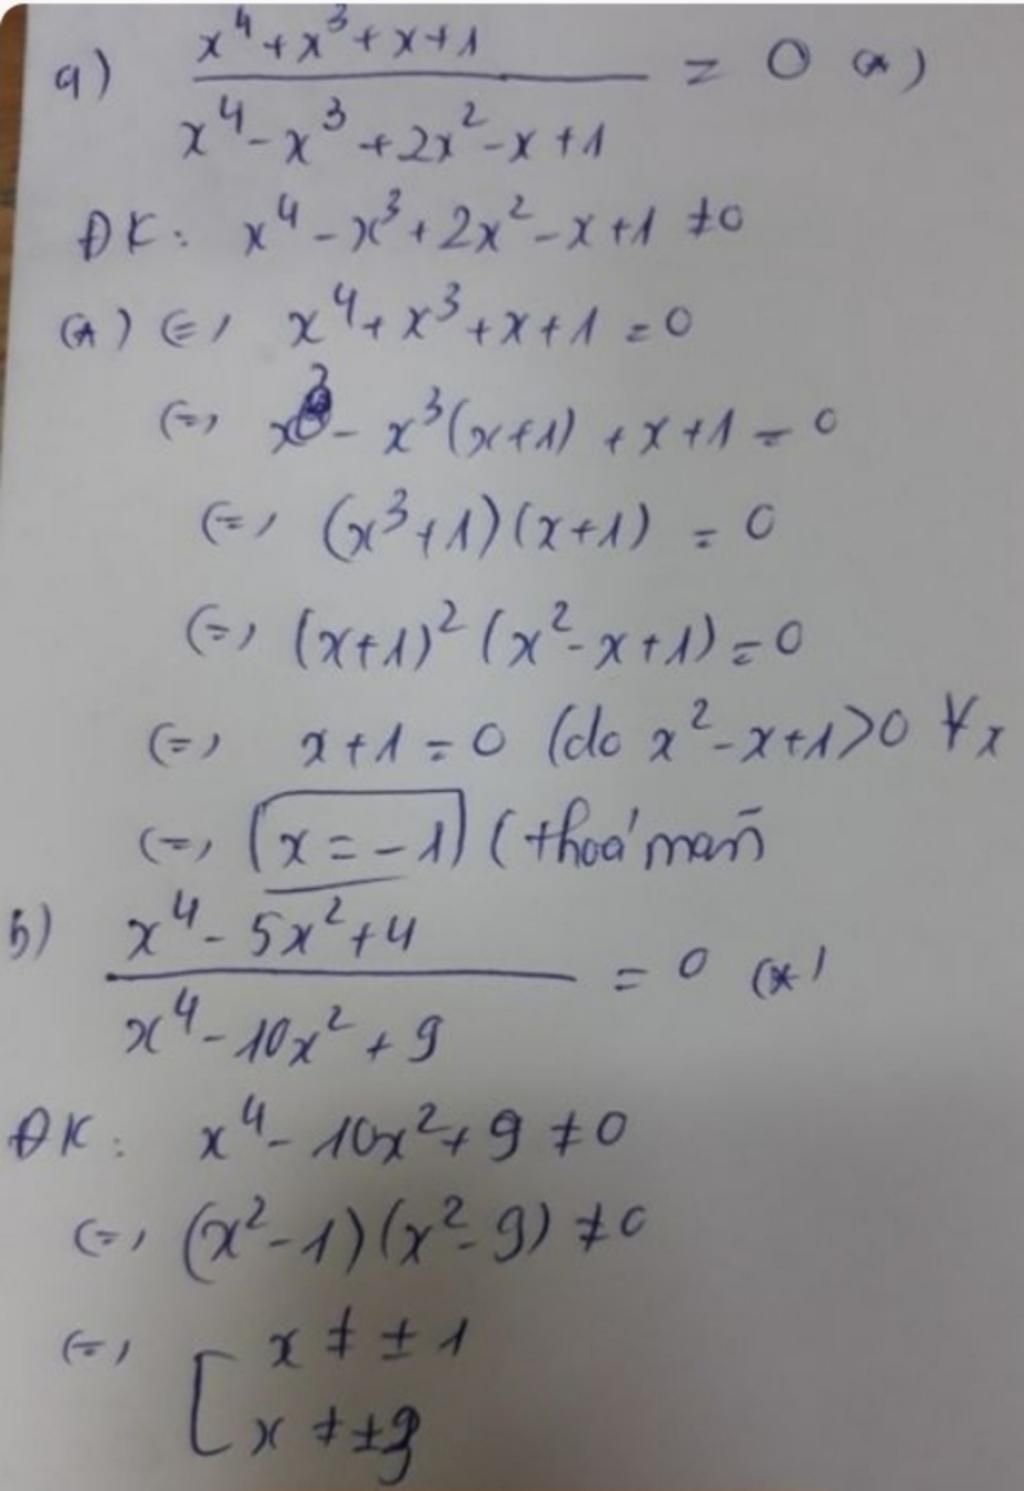 a) x⁴ + x³ + x + 1 / x⁴ - x³ + 2x² - x + 1 = 0 (*)
ĐK: x⁴ - x³ + 2x² - x + 1 ≠ 0
(*) (=) x⁴ + x³ + x + 1 = 0
(=) - x³(x+1) + x + 1 = 0
(=) (x³ + 1)(x + 1) = 0
(=) (x+1)² (x² - x + 1) = 0
(=) x + 1 = 0 (do x² - x + 1 > 0 ∀x
(=) x = -1 (thoả mãn
b) x⁴ - 5x² + 4 / x⁴ - 10x² + 9 = 0 (*)
ĐK: x⁴ - 10x² + 9 ≠ 0
(=) (x² - 1)(x² - 9) ≠ 0
(=) [ x ≠ ± 1
x ≠ ±3